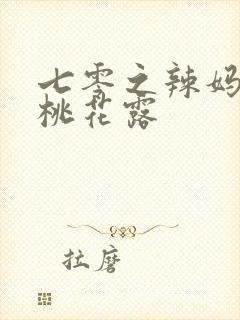 七零之辣妈
桃花露
拉磨